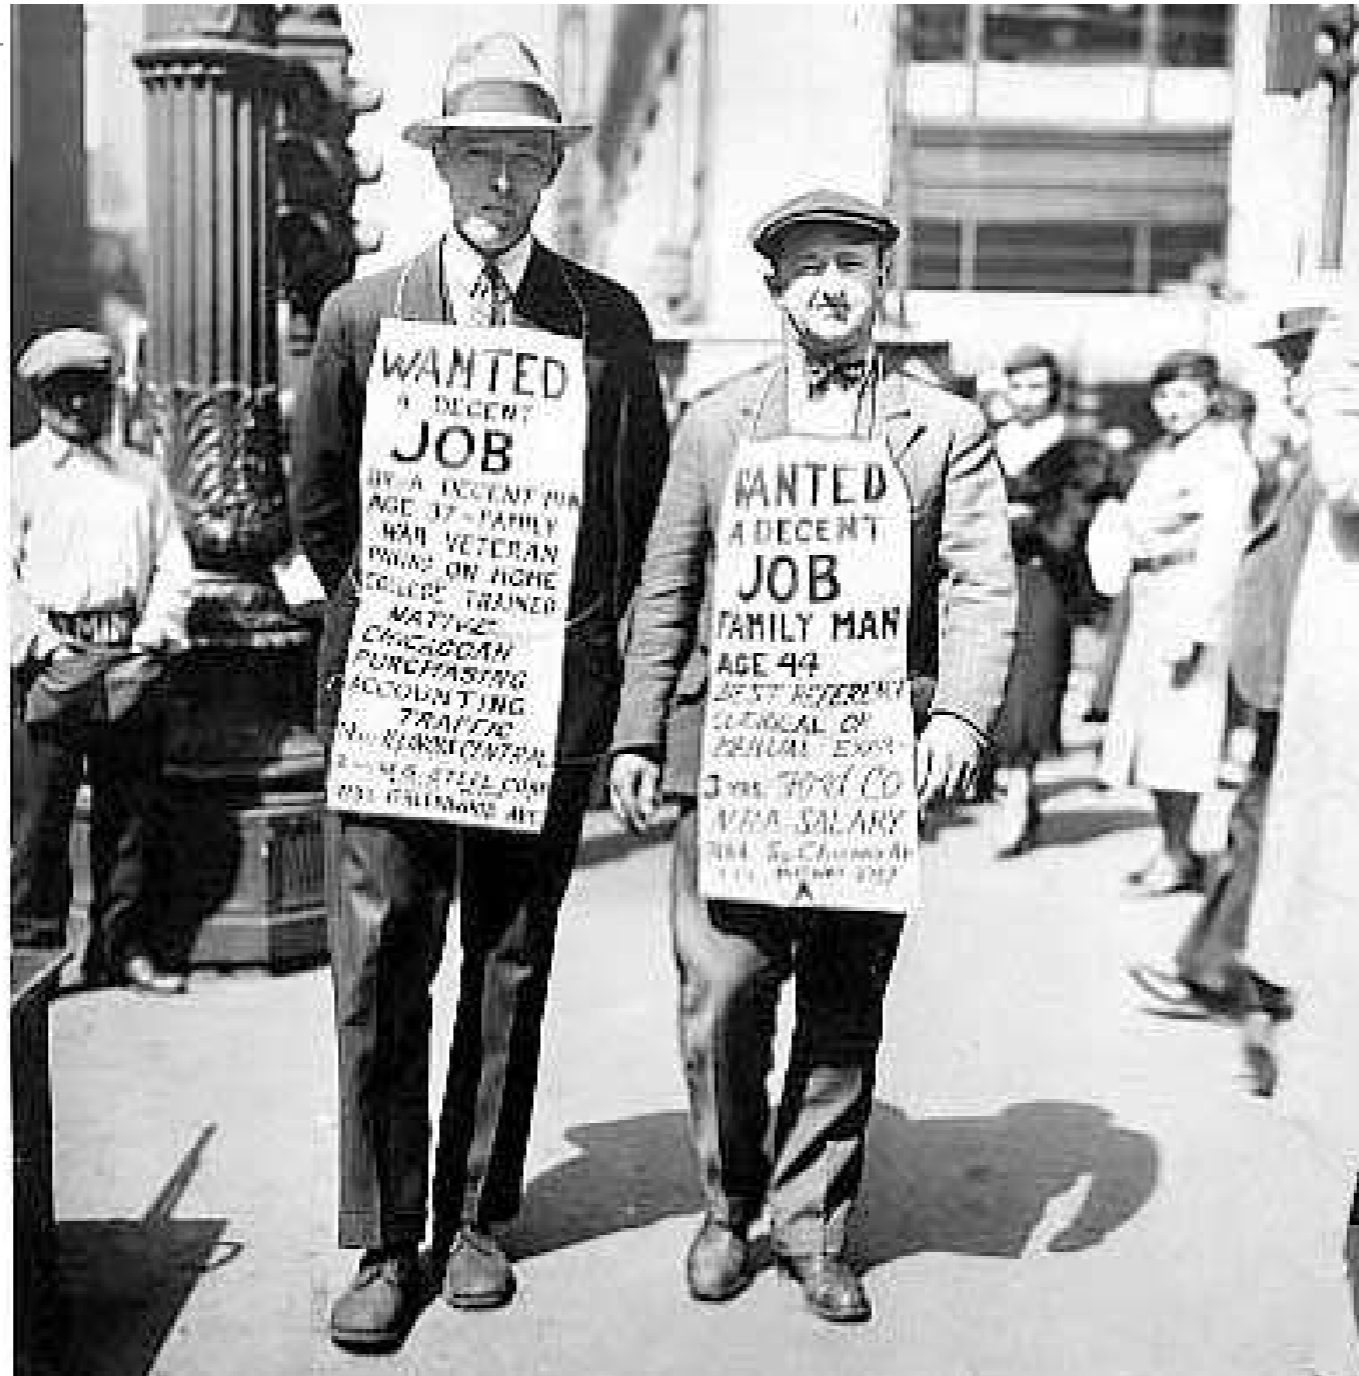 WANTED
A DECENT
JOB
BY A DECENT MAN
AGE 37 - FAMILY
WAR VETERAN
ON HOME
COLLEGE TRAINED
NATIVE
CHICAGOAN
PURCHASING
ACCOUNTING
TRAFFIC
ILLINOIS CENTRAL
STEEL CORP
GREENWOOD AVE
WANTED
A DECENT
JOB
FAMILY MAN
AGE 44
BEST REFERENC
CLERICAL OR
MANUAL EXPR
3 YRS FORD CO
NRA SALARY